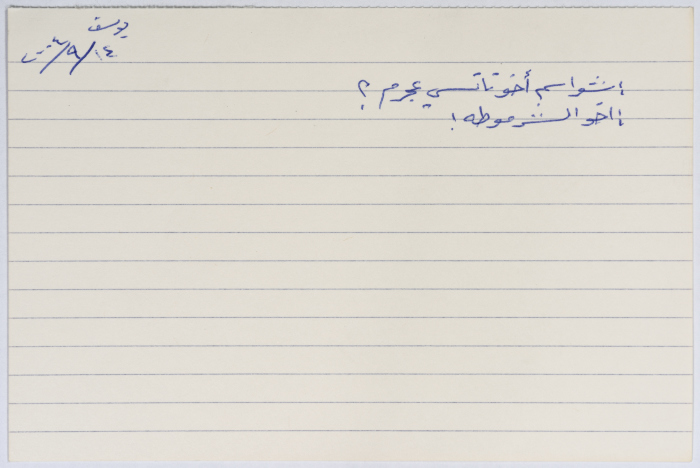 يوسف
١٤/٨/
: شو اسم أخو نانسي عجرم ؟
: اخو الشرموطه !